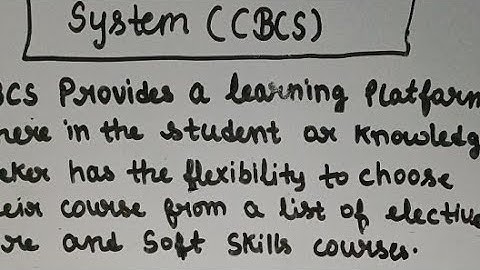 System (CBCS)
BCS Provides a learning Platform
here in the student or Knowledg
eker has the flexibility to choose
eir course from a list of elective
re and Soft Skills courses.